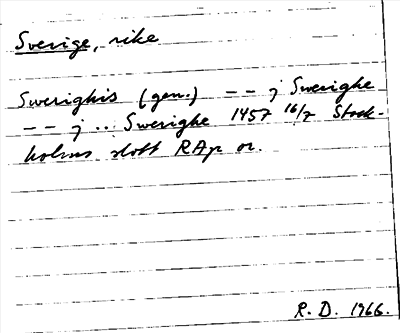 Sverige, rike
Swerighis (gen.) – – ; Swerighe
– – ; ... Swerighe 1457 16/7 Stock-
holms slott RAp or.
R. D. 1966.